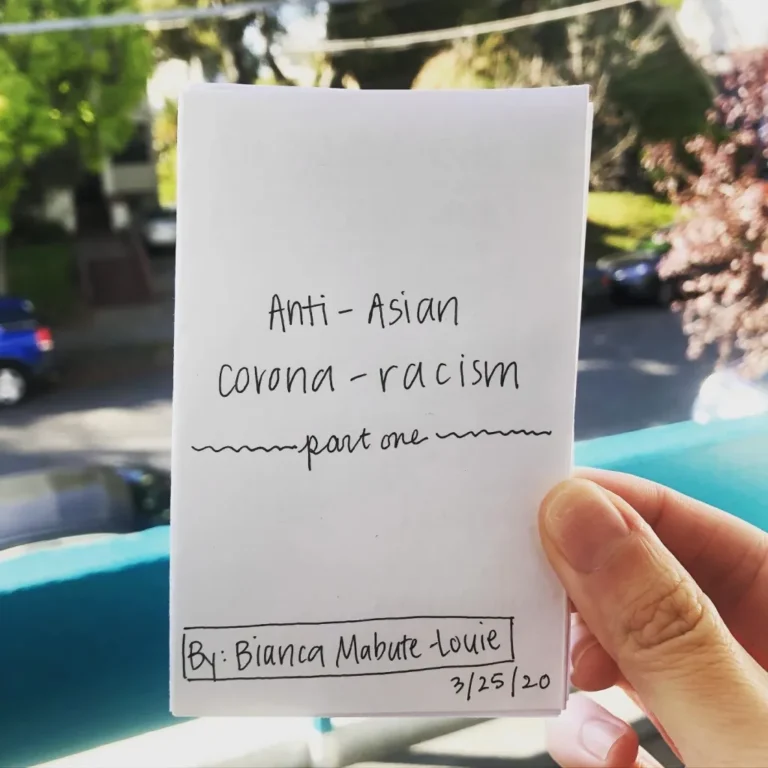 Anti - Asian
corona - racism
part one
By: Bianca Mabute-Louie
3/25/20